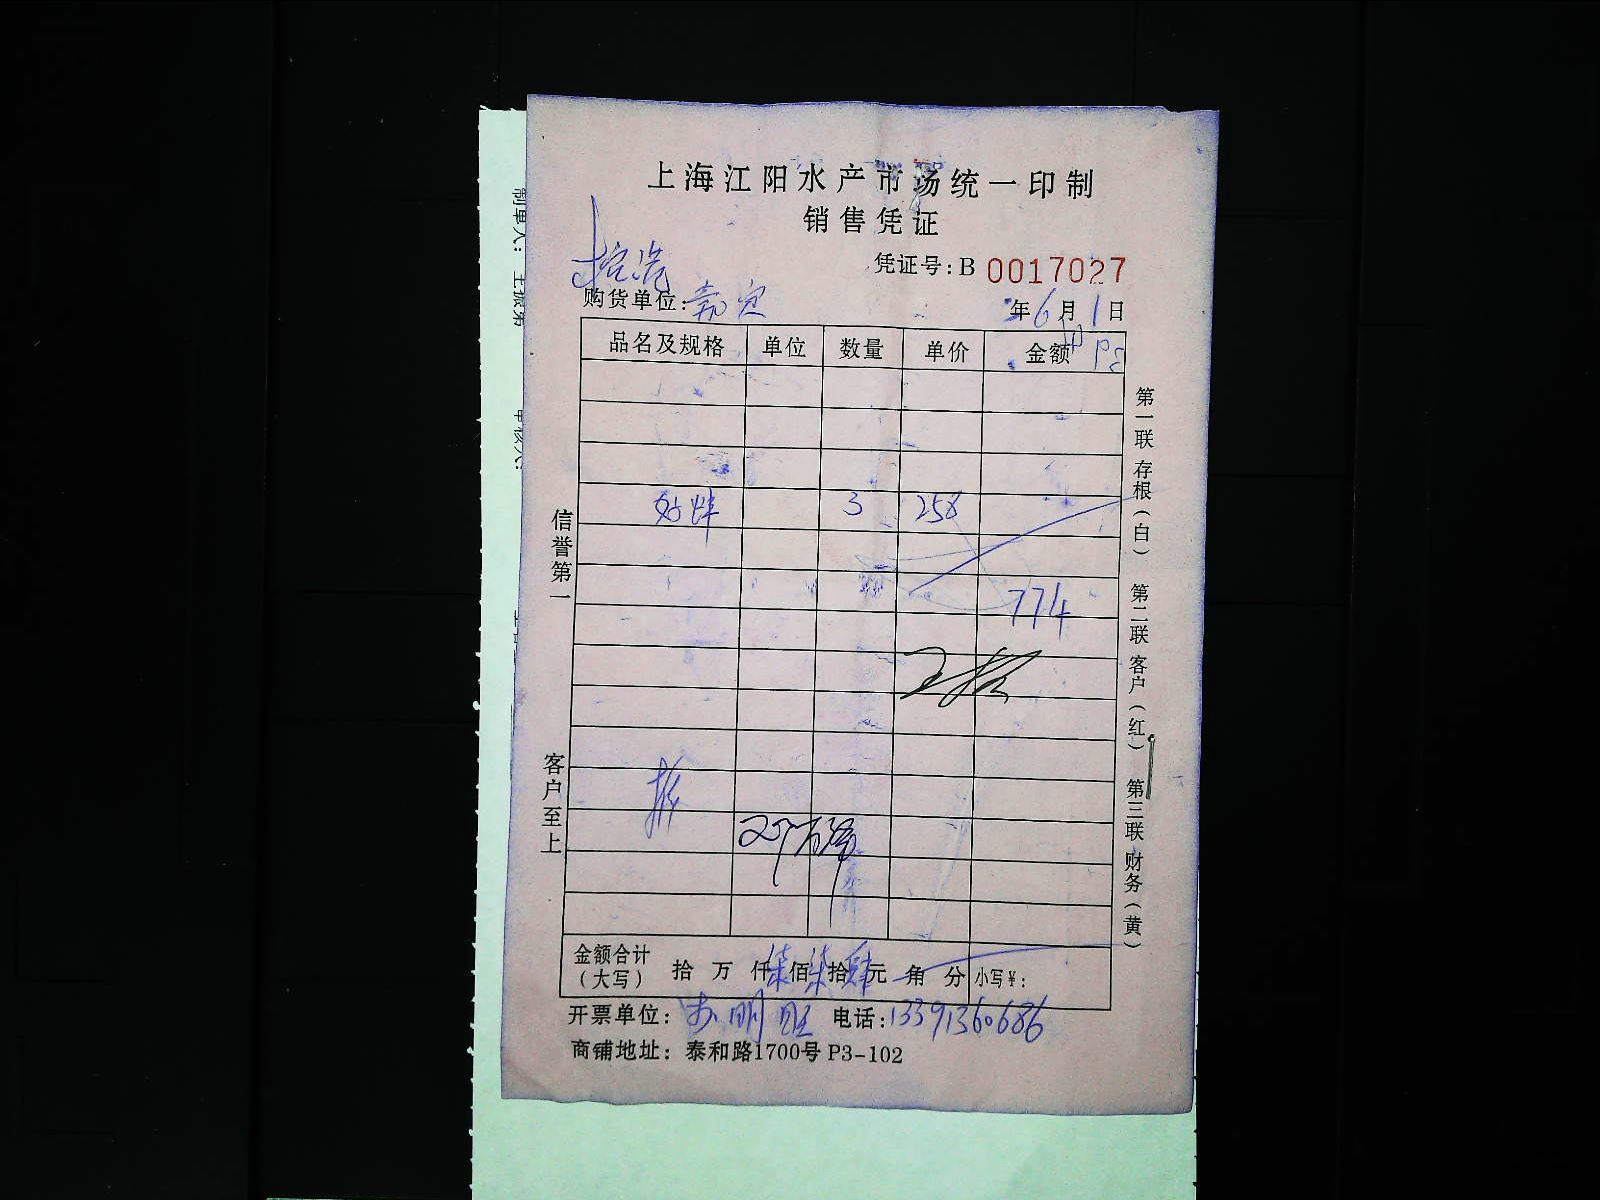 上海江阳水产市场统一印制
销售凭证
凭证号:B 0017027
购货单位: 嘉定
年6月1日
品名及规格 单位 数量 单价 金额
3 258
774
信誉第一
客户至上
第一联 存根(白) 第二联 客户(红) 第三联 财务(黄)
金额合计
(大写) 拾 万 仟柒佰柒拾肆元 角 分 小写¥:
开票单位: 电话:13391360686
商铺地址: 泰和路1700号P3-102
制单人:
审核人: